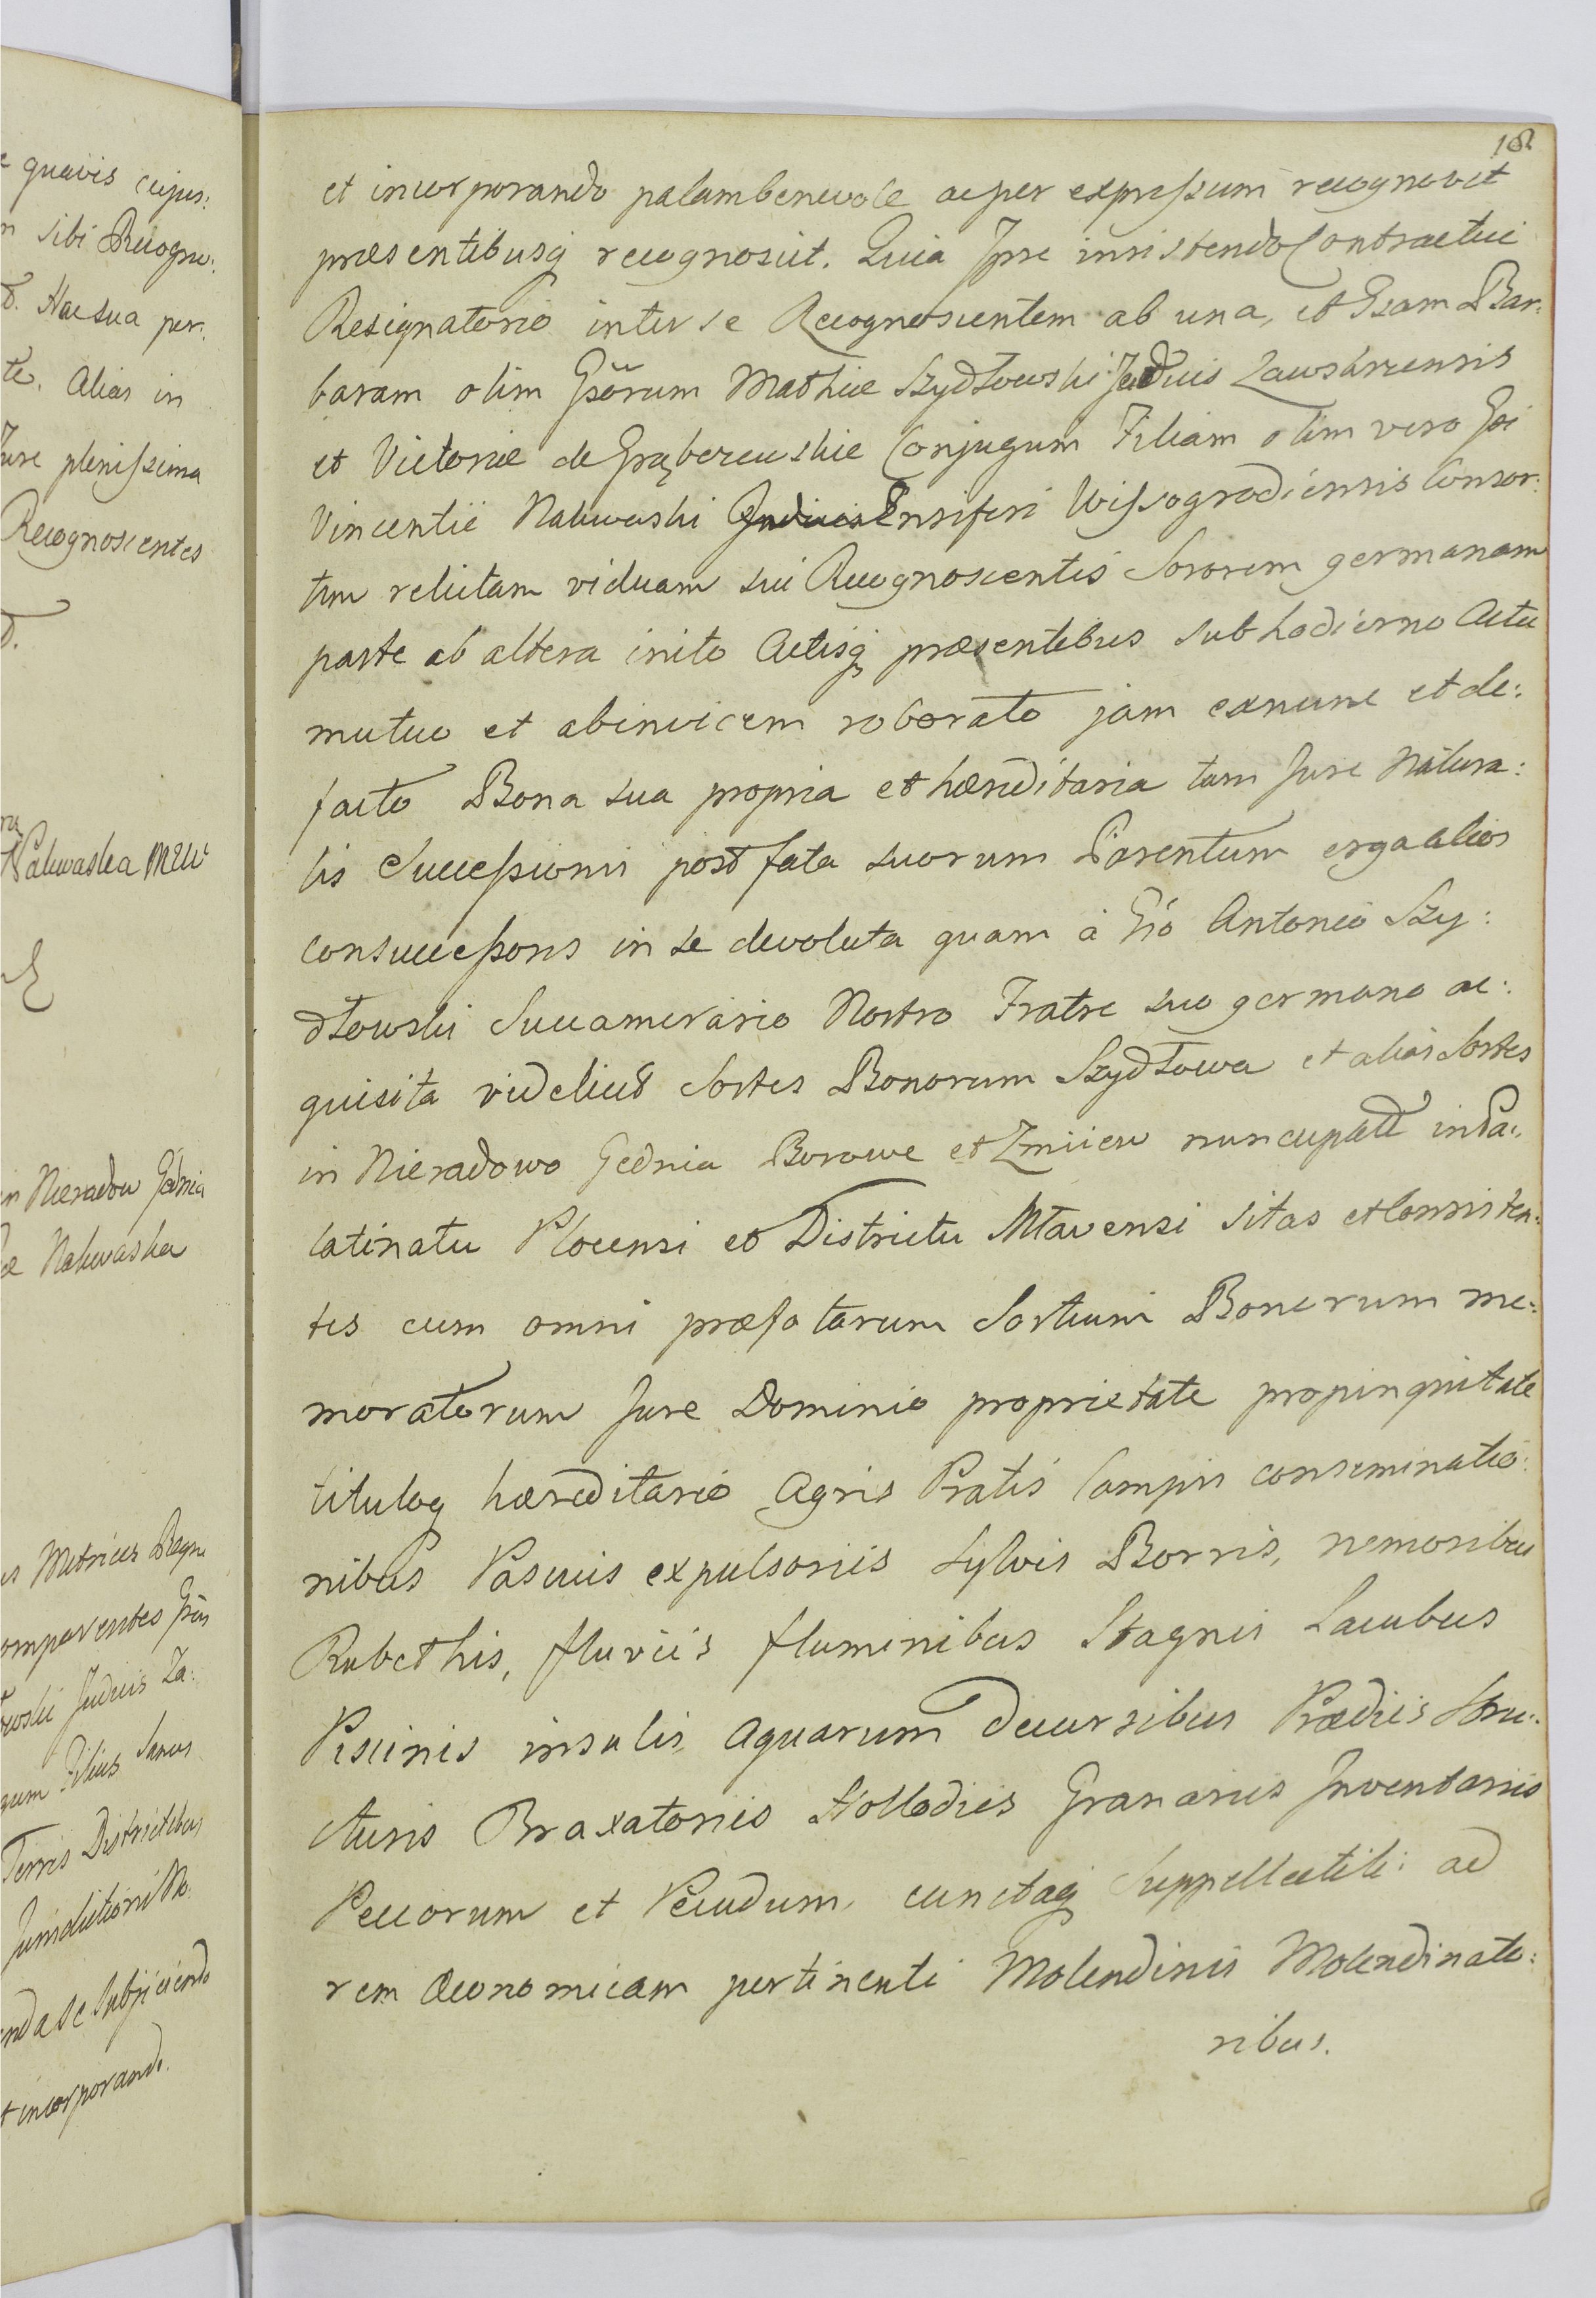 e quavis cujus:
n sibi Recogno:
d. Hac sua per:
te. Alias in
Jure plenissima
Recognoscentes
d.
Nakwaska mw
in Nieradow Gednia
Nakwaska
Metrices Regni
omparentes
Judicis Za:
gum Filius Sanus
Terris Districtibus
Jurisdictioni No:
enda se subjiciendo
t incorporando.
182
et incorporando palam benevole ac per expressum recognovit
præsentibusq recognoscit. Quia Ipse insistendo Contractui
Resignatorio inter se Recognoscentem ab una, et Gsam Bar:
baram olim Gsorum Mathiæ Szydłowski Judicis Zawskrzensis
et Victoriæ de Grąbczewskie Conjugum Filiam olim vero Gsi
Vincentii Nakwaski Ensiferi Wissogrodiensis Consor:
tem relictam viduam sui Recognoscentis Sororem germanam
parte ab altera inito Actisq præsentibus sub hodierno Actu
mutuo et abinvicem roborato jam exnunc et de:
facto Bona sua propria et hæreditaria tam Jure Natura:
lis Successionis post fata suorum Parentum erga alios
consuccessores in se devoluta quam à Gso Antonio Szy:
dłowski Succamerario Nostro Fratre suo germano ac:
quisita videlicet Sortes Bonorum Szydłowa et alias Sortes
in Nieradowo Gednia Borowe et Zmijew nuncupatt in Pa:
latinatu Plocensi et Districtu Mławensi sitas et consisten:
tes cum omni præfatarum Sortium Bonorum me:
moratorum Jure Dominio proprietate propinquitate
tituloq hæreditario Agris Pratis Campis conseminatio:
nibus Pascuis expulsoriis Sylvis Borris, nemoribus
Rubethis, fluviis fluminibus Stagnis Lacubus
Piscinis insulis Aquarum decursibus Prædiis Stru:
cturis Braxatoriis Hollodiis Granariis Inventariis
Peccorum et Pecudum, cunctaq Suppellectili ad
rem Œconomicam pertinenti Molendinis Molendinato:
ribus.